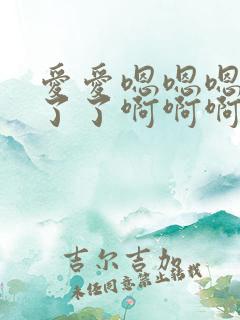 愛愛嗯嗯嗯
了了啊啊啊
吉尔吉加
未经同意禁止转载